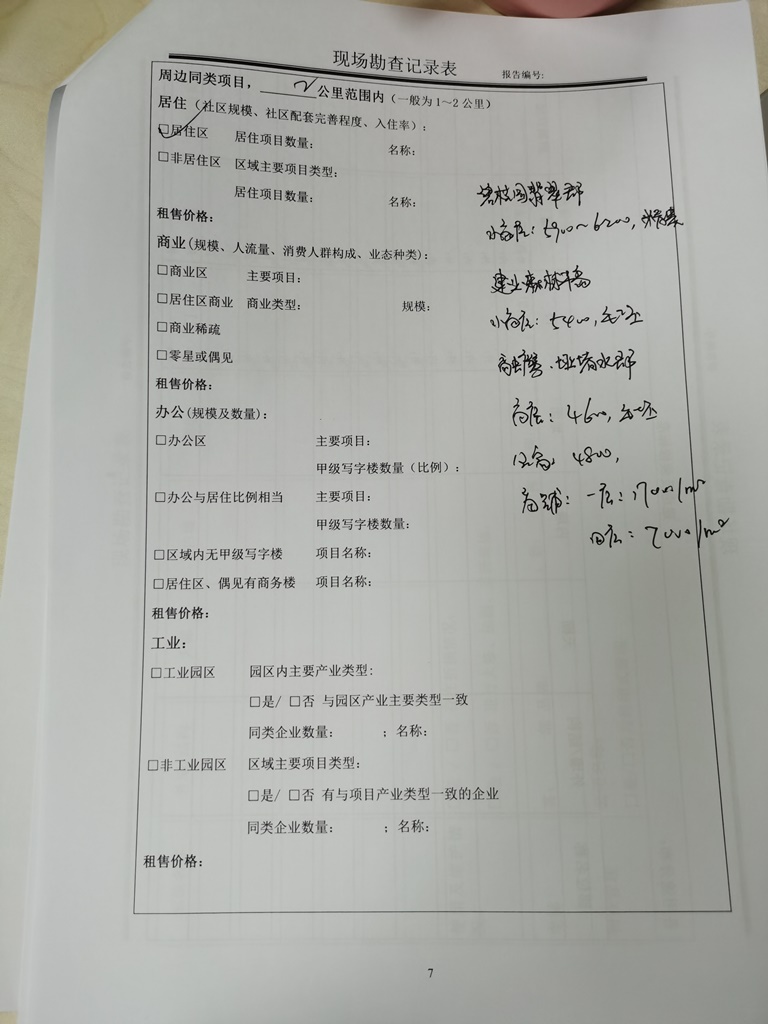 现场勘查记录表
报告编号:
周边同类项目，2公里范围内（一般为1～2公里）
居住（社区规模、社区配套完善程度、入住率）：
☑居住区 居住项目数量： 名称：
□非居住区 区域主要项目类型：
居住项目数量： 名称： 碧桂园翡翠郡
租售价格： 小高层：5900～6200，
商业(规模、人流量、消费人群构成、业态种类)：
□商业区 主要项目： 建业
□居住区商业 商业类型： 规模：
小高层：5400，毛坯
□商业稀疏
□零星或偶见
租售价格：
办公(规模及数量)： 高层：4600，毛坯
□办公区 主要项目：
甲级写字楼数量（比例）： 4800，
□办公与居住比例相当 主要项目： 商铺：一层：17000/m²
甲级写字楼数量： 层：7000/m²
□区域内无甲级写字楼 项目名称：
□居住区、偶见有商务楼 项目名称：
租售价格：
工业：
□工业园区 园区内主要产业类型:
□是/ □否 与园区产业主要类型一致
同类企业数量： ；名称：
□非工业园区 区域主要项目类型：
□是/ □否 有与项目产业类型一致的企业
同类企业数量： ；名称：
租售价格：
7